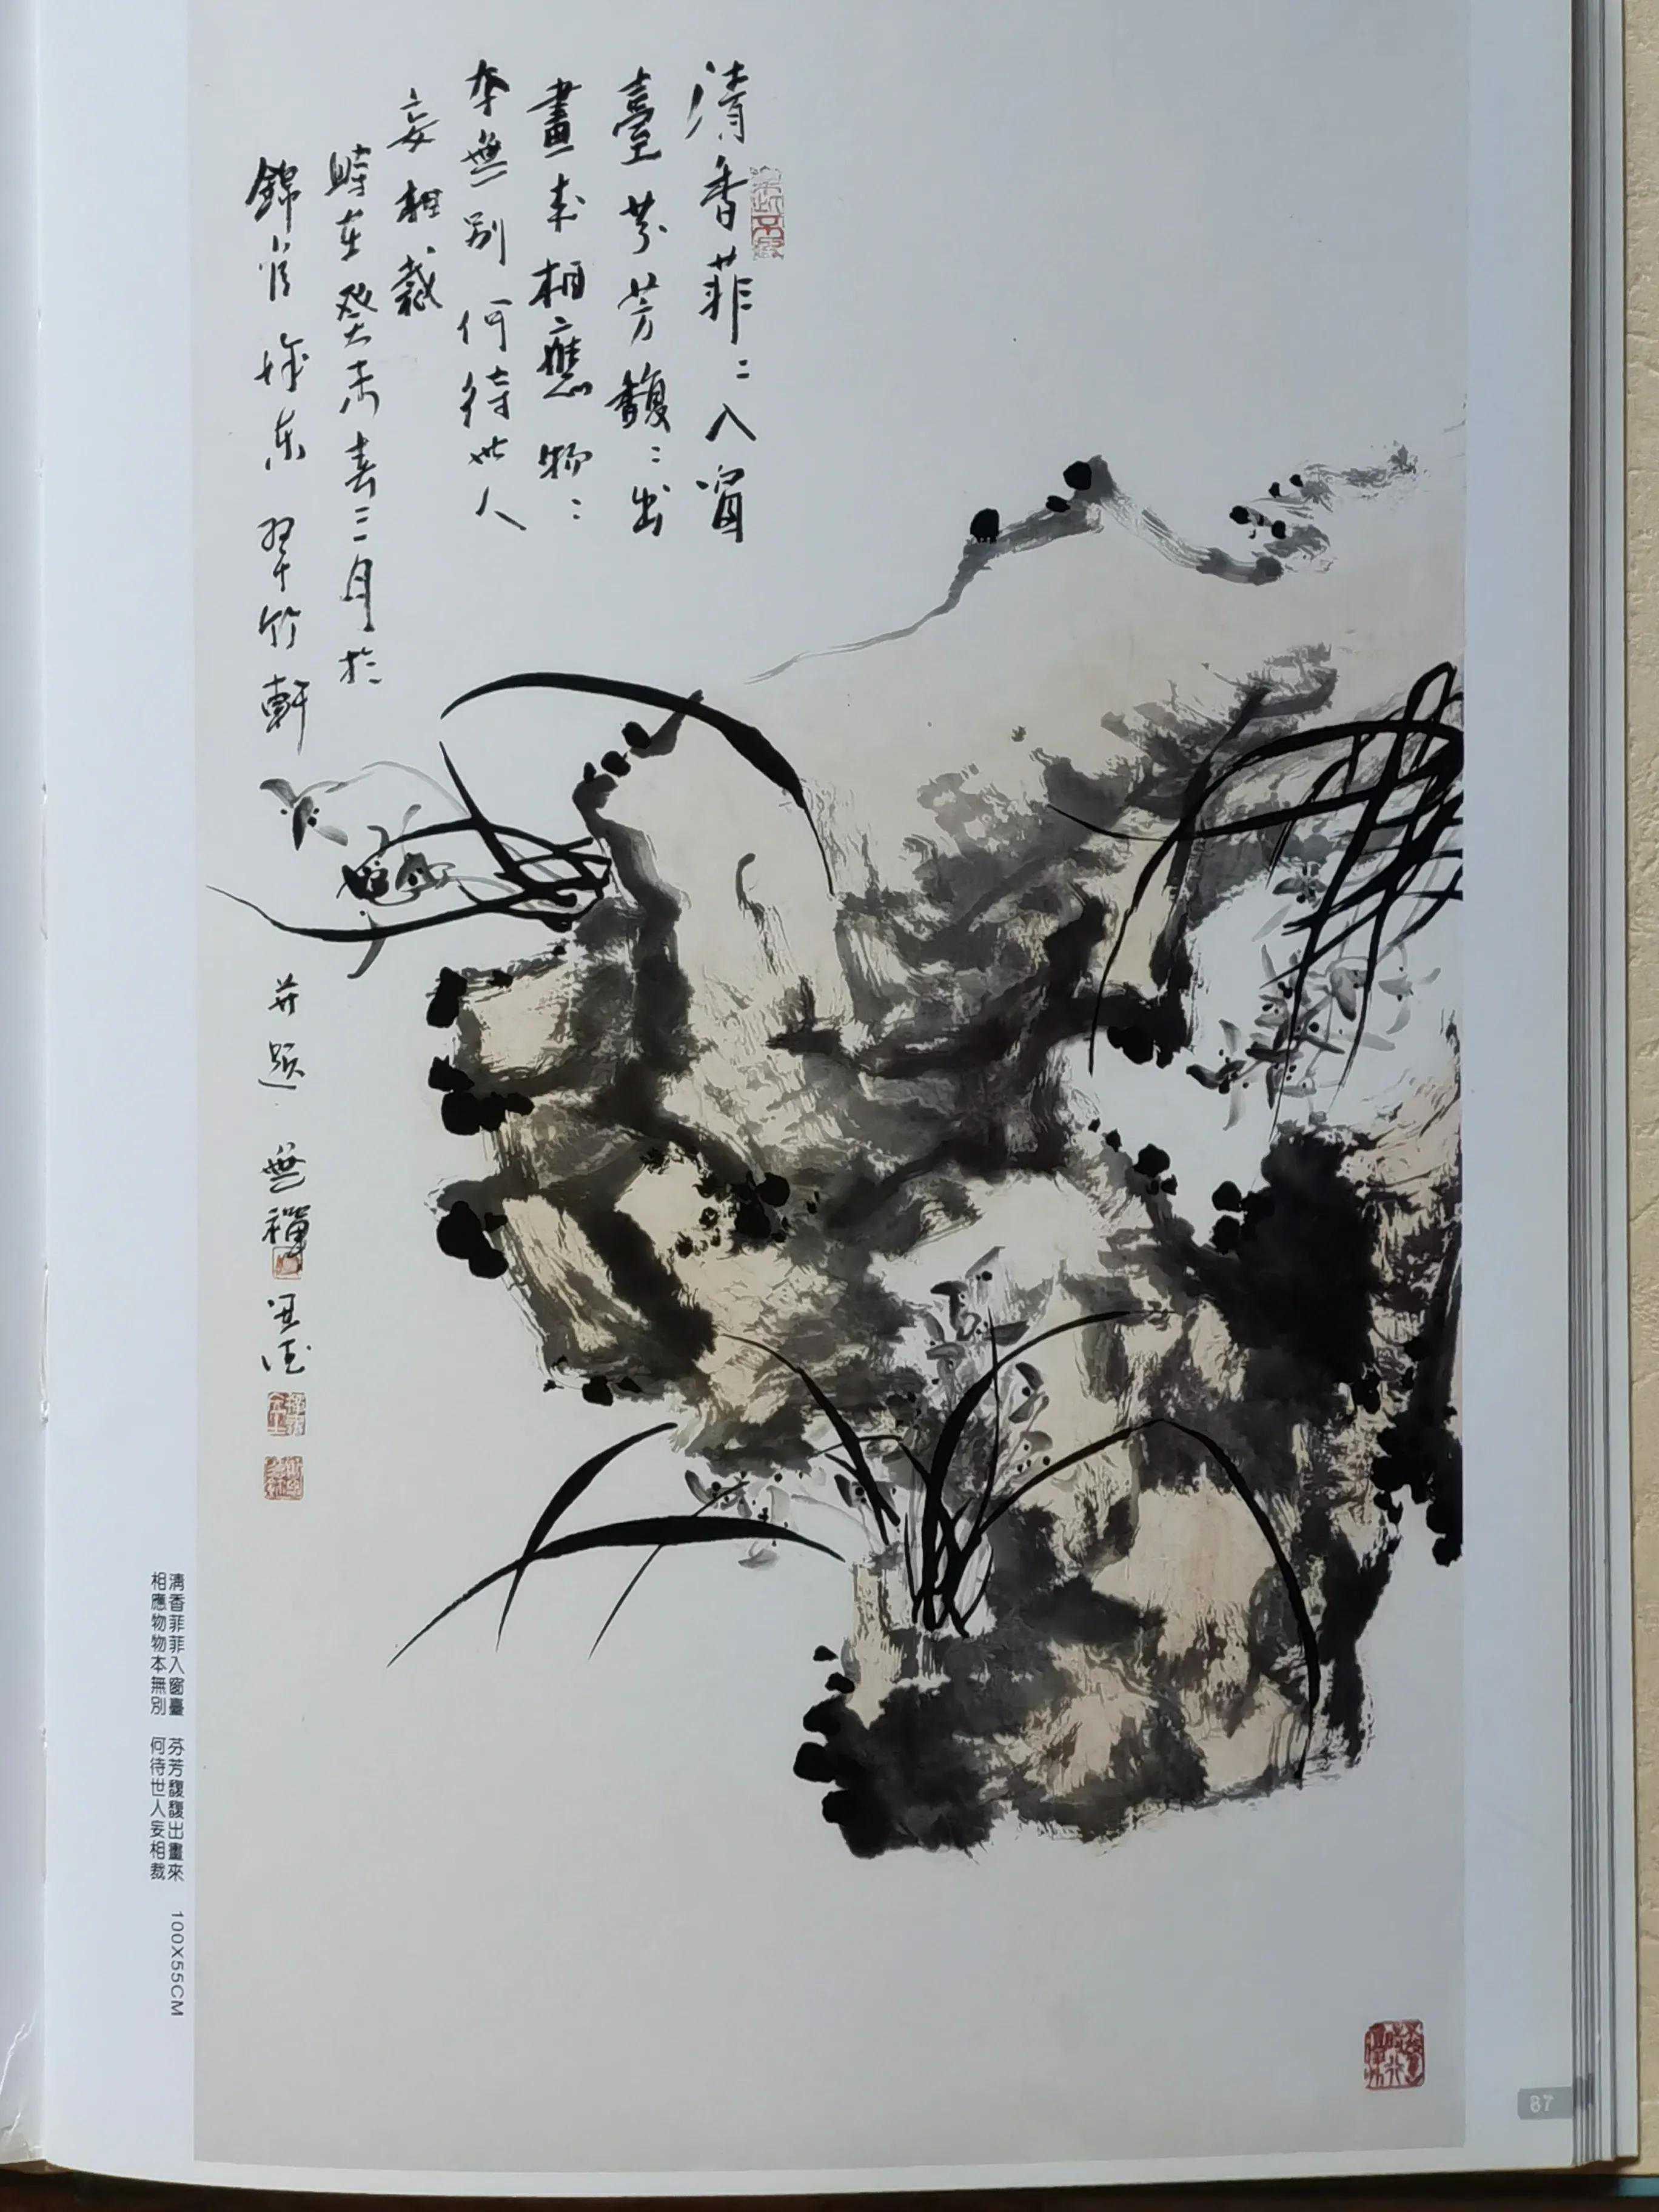 清香菲〻入窗
臺芬芳馥〻出
畫來相應物〻
本無別何待世人
妄相裁
時在癸未春三月於
錦官城東翠竹軒
并題 無禪
清香菲菲入窗臺 芬芳馥馥出畫來
相應物物本無別 何待世人妄相裁
100X55CM
87